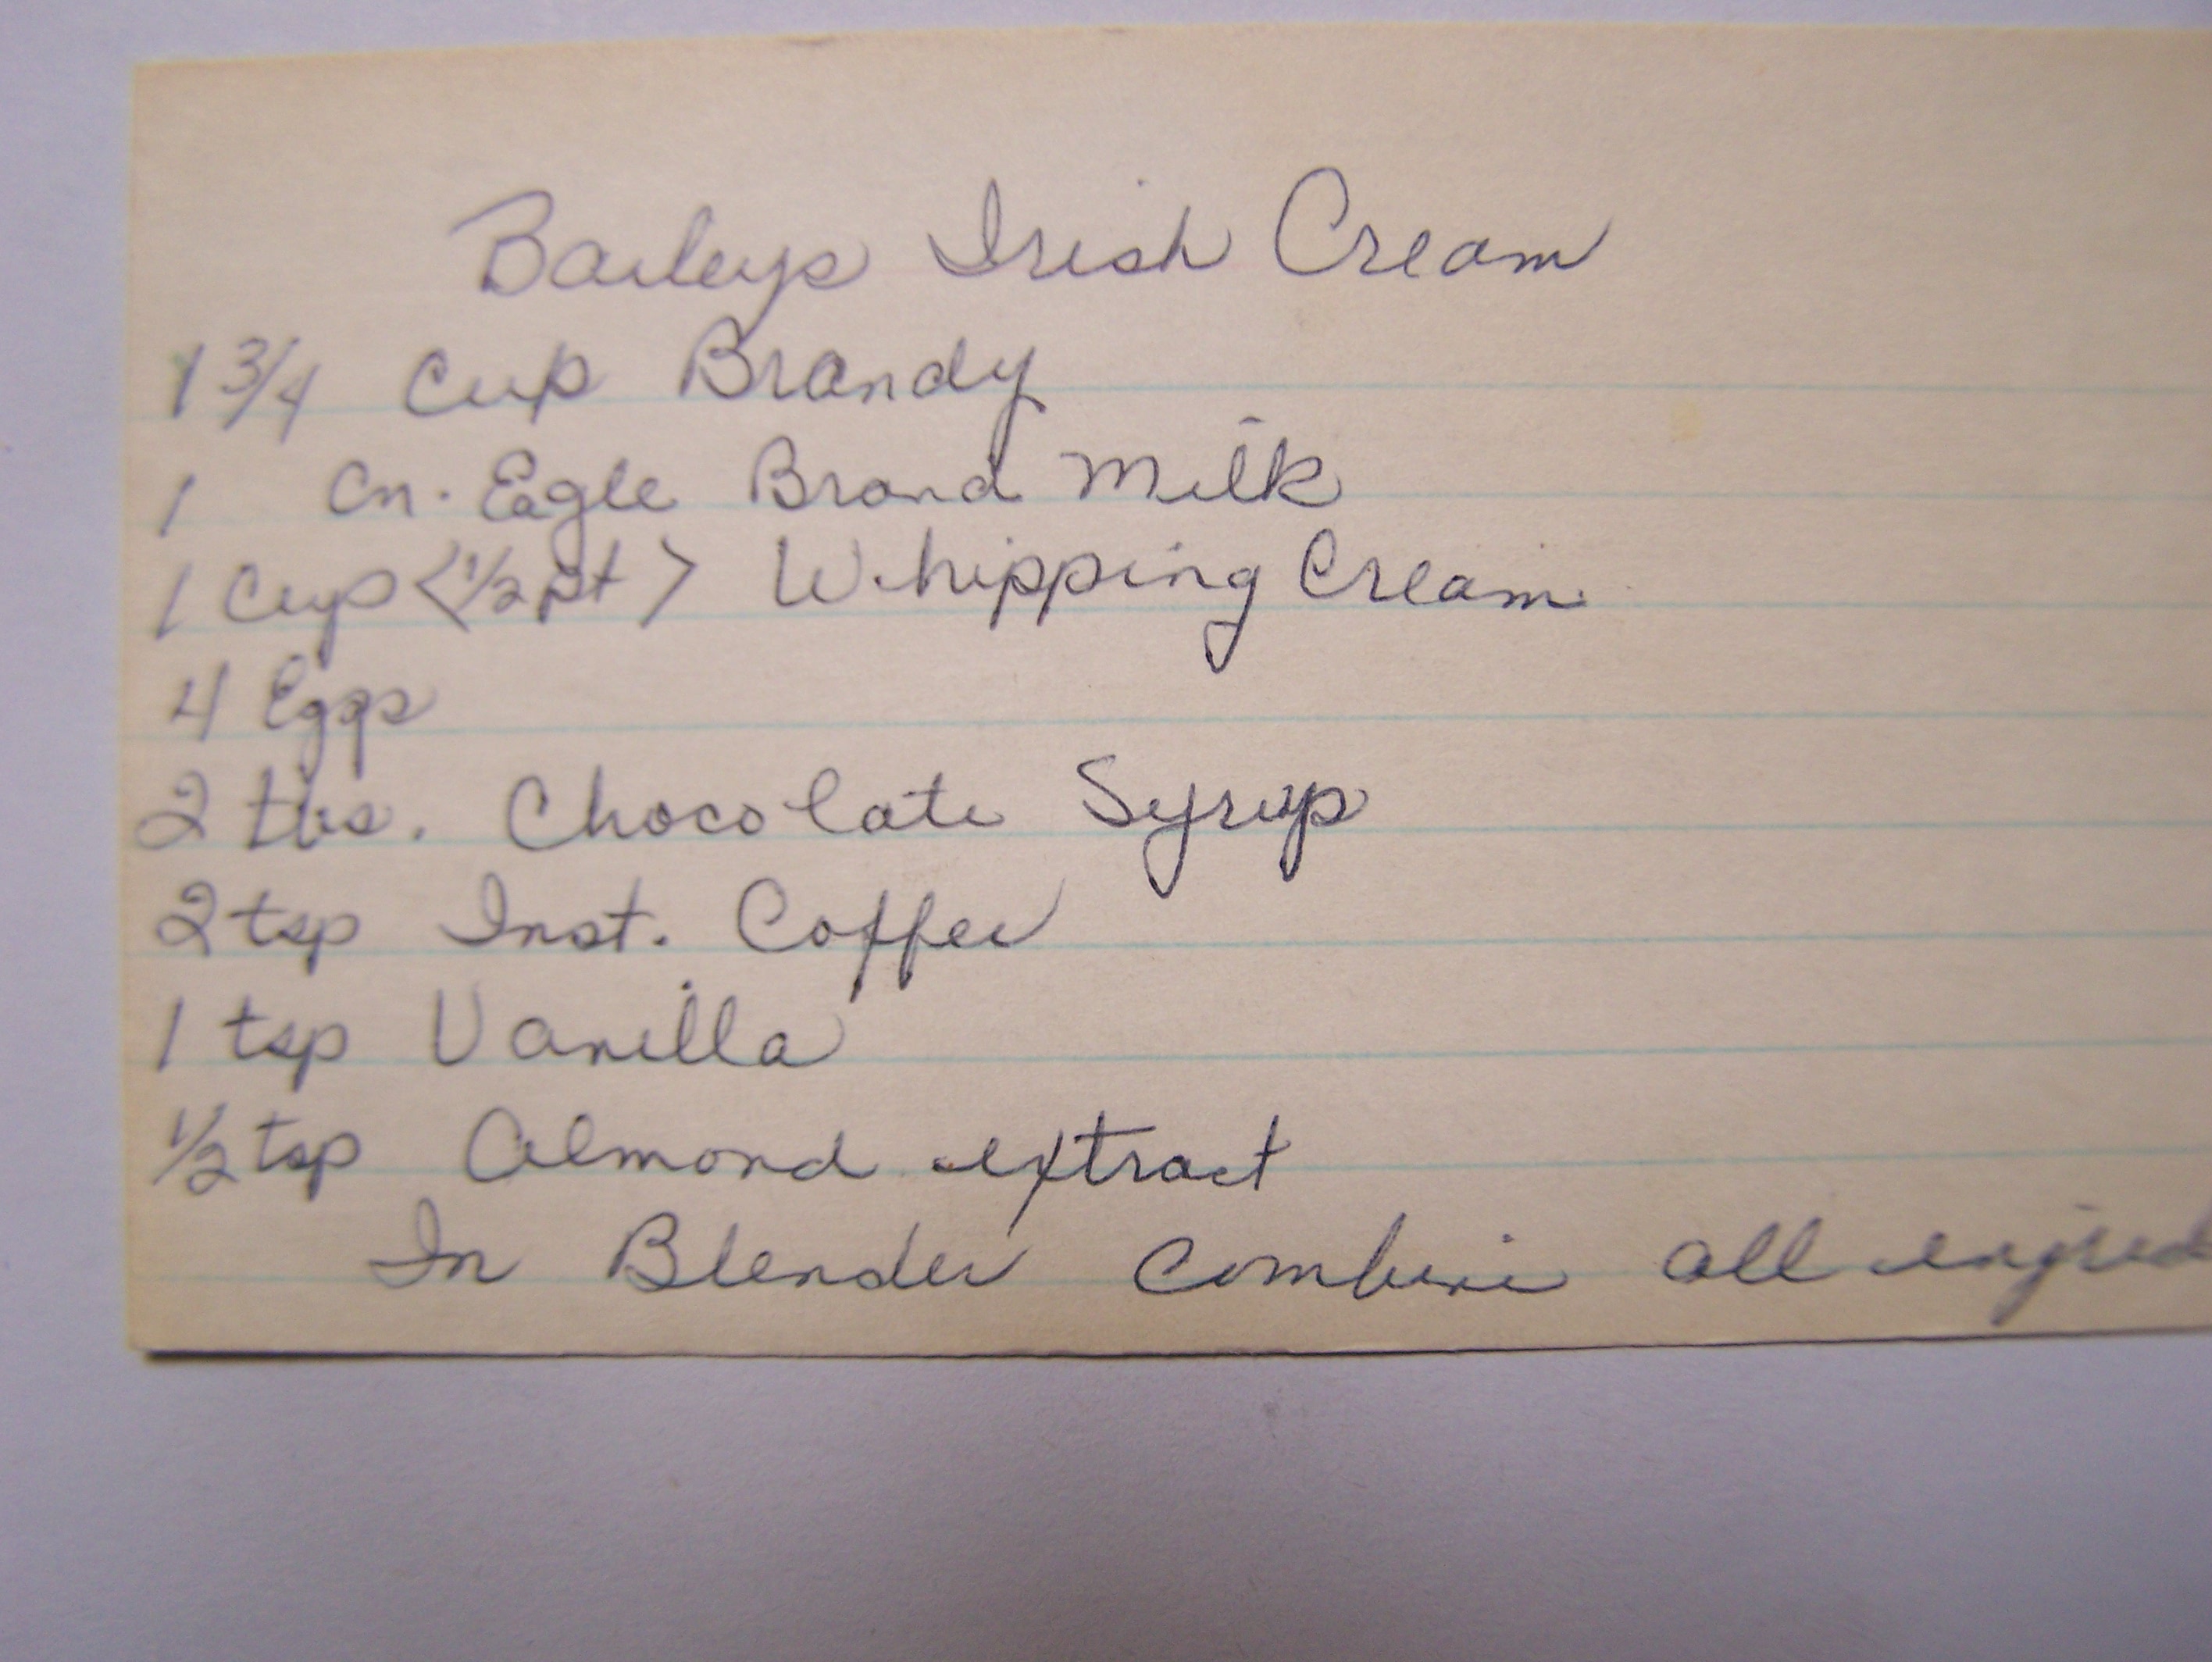 Baileys Irish Cream
1 3/4 Cup Brandy
1 Cn. Eagle Brand Milk
1 Cup <1/2 pt> Whipping Cream
4 Eggs
2 tbs. Chocolate Syrup
2 tsp Inst. Coffee
1 tsp Vanilla
1/2 tsp Almond extract
In Blender Combine all ingred